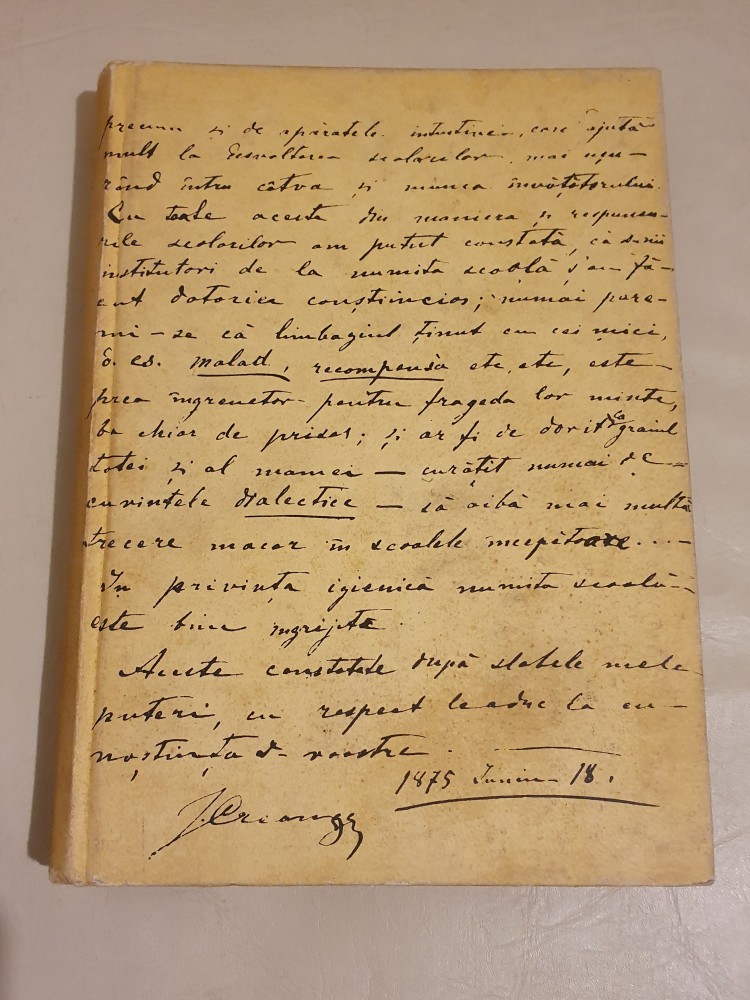 precum și de aparatele intuitive, care ajută
mult la desvoltarea scolarilor, mai ușu-
rând întru câtva și munca învățătorului.
Cu toate aceste din maniera și respunsu-
rile scolarilor am putut constata, că d-nii
institutori de la numita scoală ș'au fă-
cut datoria conștiincios; numai pare-
mi-se că limbagiul ținut cu cei mici,
d. es. malad, recompensa etc, etc, este
prea îngreuetor pentru frageda lor minte,
ba chiar de prisos; și ar fi de dorit ca graiul
tatei și al mamei — curățit numai de
cuvintele dialectice — să aibă mai multă
trecere macar în scoalele începătoare...-
In privința igienică numita scoală
este bine îngrijită.
Aceste constatate după slabele mele
puteri, cu respect le aduc la cu-
noștiința d-voastre.
1875 Iuniu 18.
I. Creangă